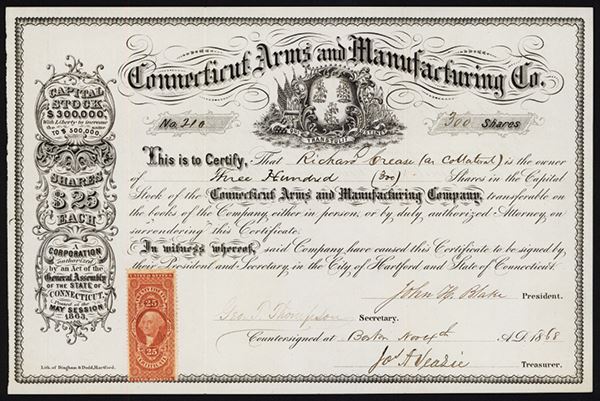 Connecticut Arms and Manufacturing Co.
No. 210
300 Shares
QUI TRANSTULIT SUSTINET
CAPITAL
STOCK
$300,000,
With Liberty to increase
the same
TO $500,000
SHARES
$25
EACH
A
CORPORATION
authorized
by an Act of the
General Assembly
OF THE STATE OF
CONNECTICUT,
Passed at the
MAY SESSION
1863.
This is to Certify, That Richard Crease (as Collateral) is the owner
of Three Hundred (300) Shares in the Capital
Stock of the Connecticut Arms and Manufacturing Company, transferable on
the books of the Company, either in person, or by, duly, authorized Attorney, on
surrendering this Certificate.
In witness whereof, said Company have caused this Certificate to be signed by
their President and Secretary, in the City of Hartford and State of Connecticut.
John H. Blake President.
Geo. S. Thompson Secretary.
Countersigned at Boston Nov 4th A.D. 1868
Jos A Veazie Treasurer.
25
25
CERTIFICATE
Lith. of Bingham & Dodd, Hartford.